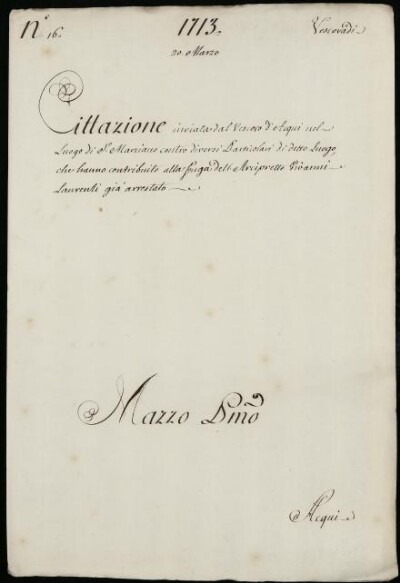 N.º 16.
1713.
Vescovadi
20. Marzo
Cittazione inviata dal Vescovo d'Acqui nel
Luogo di S.t Marziano contro diversi Particolari di detto Luogo,
che hanno contribuito alla fuga dell'Arciprette Giovanni
Laurenti già arrestato
Mazzo Pmo
Acqui